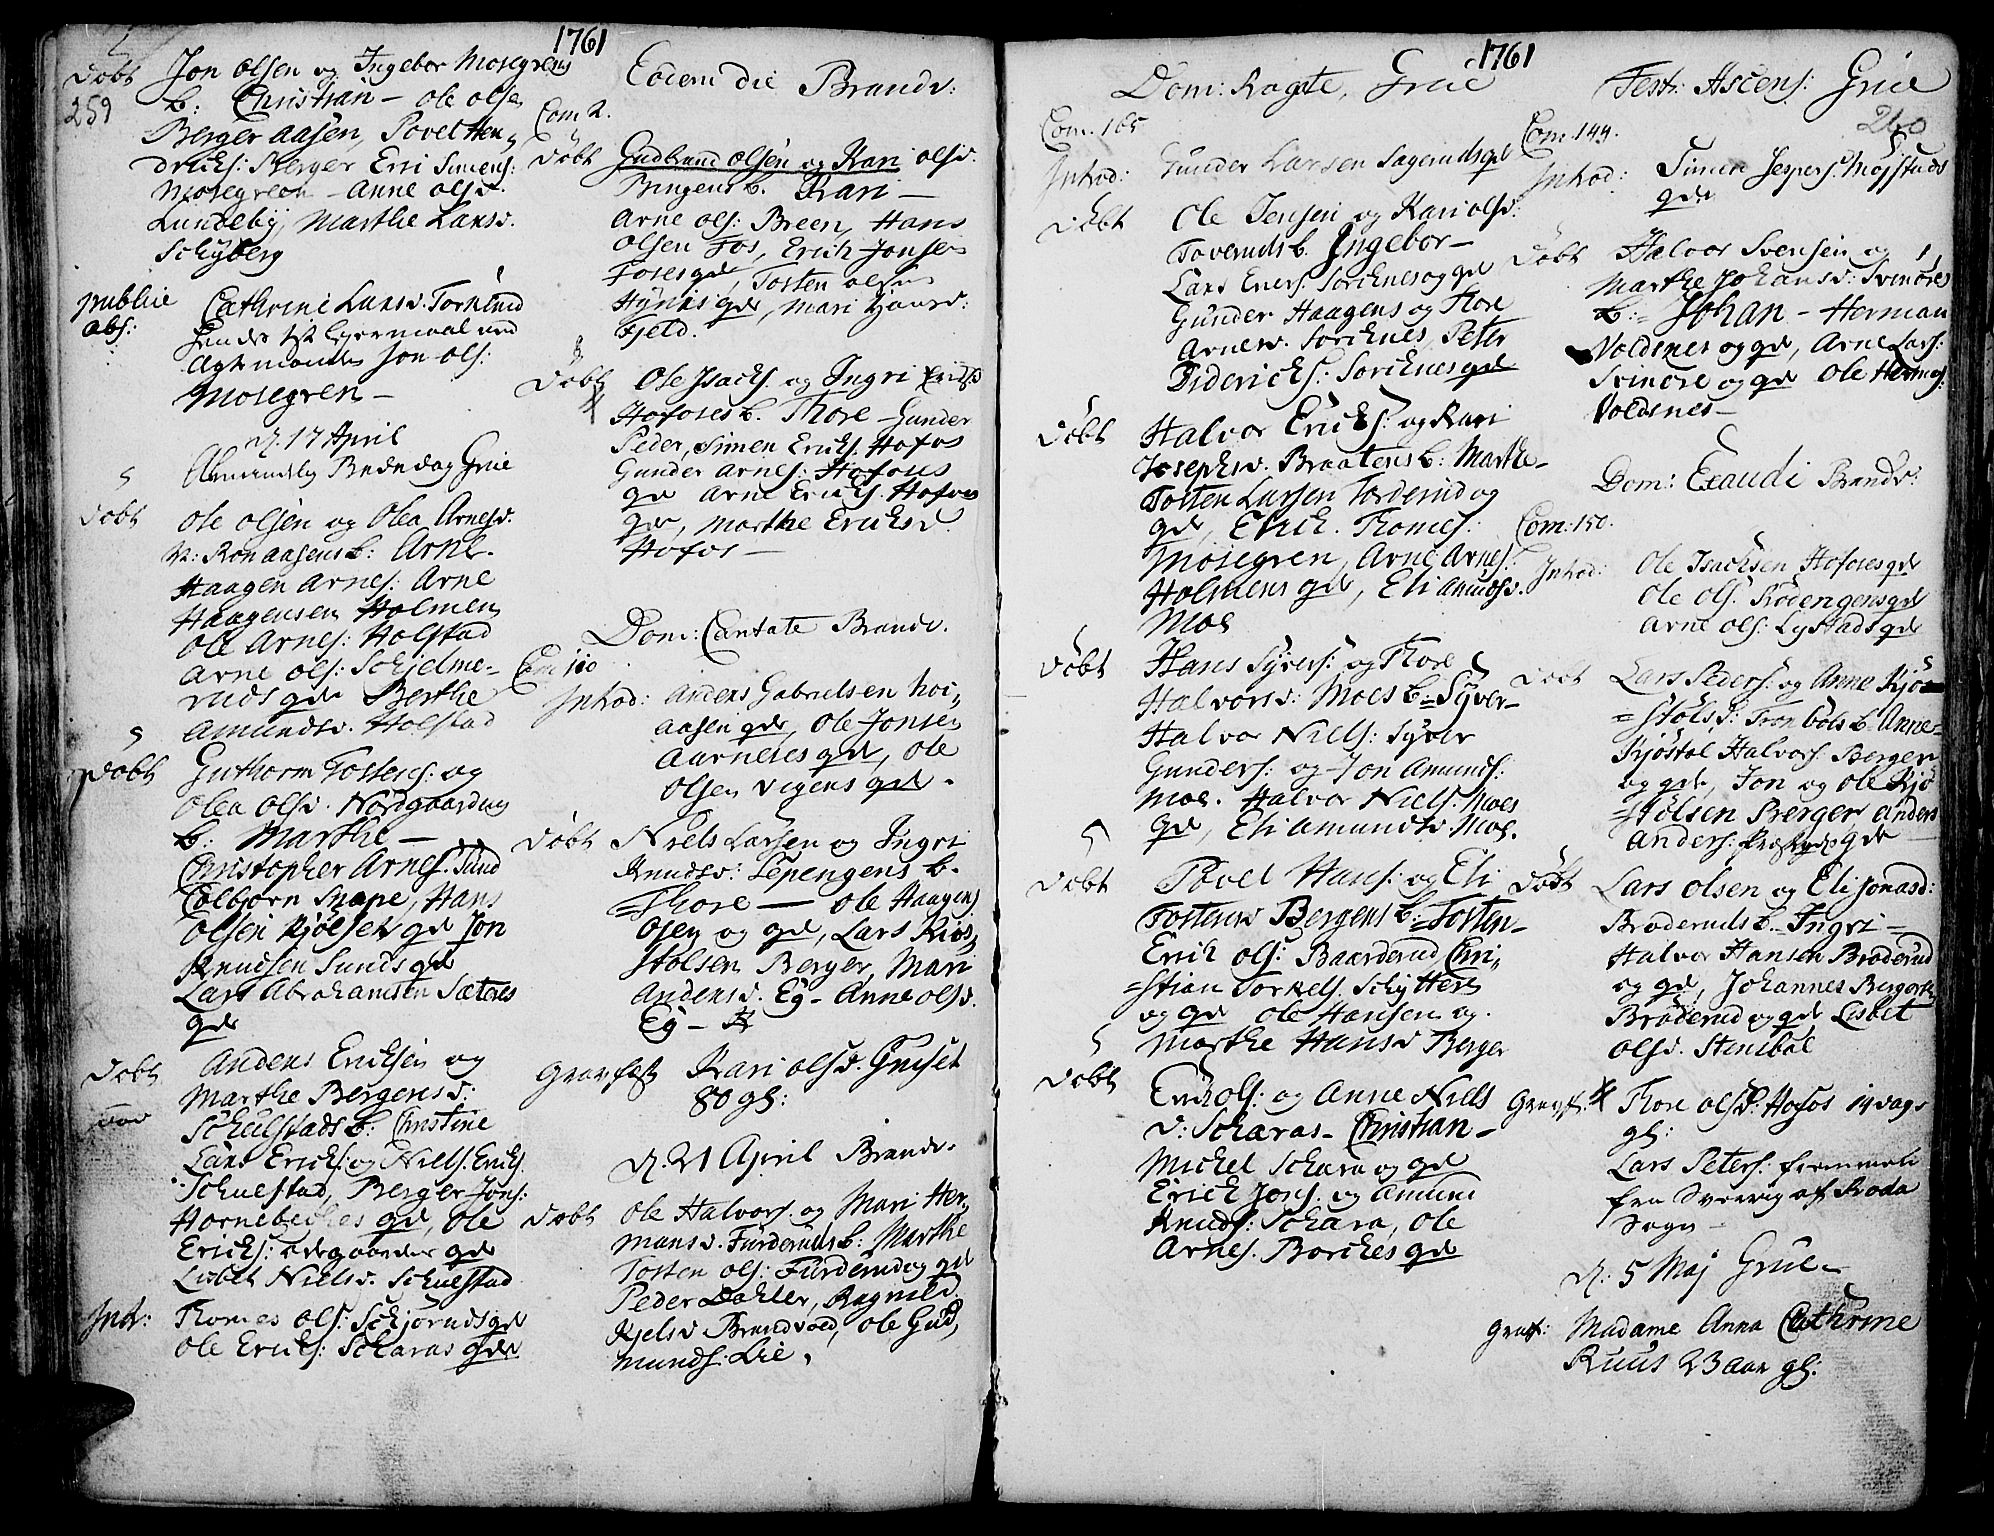 1761
döbt Jon olsen og Ingebor Mosegrens
259 b: Christian - ole olsen
Berger aasen, Povel Hen,,
dricks: Berger Eri Simens:
Mosegreen - Anne olsd.
Lundeby, Marthe Larsd.
Schyberg
publice Cathrine Larsd. Tornerud
abs: hendes 1st lejermaal med
Ægte manden Jon ols:
Mosegren -
d. 17 April
Almindelig Bededag Grue
döbt ole olsen og Olea Arnesd.
N: Ronaasens b: Arne -
Haagen Arnes: Arne
Haagensen Holmen
ole Arnes: Holstad
Arne ols: Schjelme-
ruds gde Berthe
Amundsd. Holstad
döbt Guthorm Tostens: og
Olea olsd. Nordgaarden
b: Marthe -
Christopher Arnes. Sund
Colbjørn Snape, Hans
olsen Kjølsen gde Jon
Knudsen Sunds gde
Lars Abrahamsen Sæteres
gde
döbt Anders Ericksen og
Marthe Bergersd:
Schulstads b: Christine
Lars Ericks: og Niels Ericks.
Schulstad, Berger Jons:
Hornebeckes gde, ole
Ericks: ødegaarden gde
Lisbet Nielsd. Schulstad
Intr: Thomes ols: Schjøruds gde
ole Ericks: Scharas gde
Eodem die Brandv:
Com 2.
döbt Gudbrand olsen og Kari olsd.
Bingens b. Kari -
Arne ols: Breen, Hans
olsen Fos, Erich Jonsen
Foses gde, Tosten olsen
Hynnis gde, Mari Hansd:
Fjeld.
döbt Ole Isachs. og Ingri Ericksd
Hofoses b. Thore - Gunder
Peder, Simen Ericks. Hofos
Gunder Arnes: Hofoses
gde Arne Ericks. Hofoses
gde, Marthe Ericksd.
Hofos -
Dom: Cantate Brandv.
Com 110
Introd: Anders Gabrielsen Hoi,,
aasen gde, Ole Jonsen
Aarneses gde, ole
olsen Vigens gde.
döbt Niels Larsen og Ingri
Knudsd: Lepengens b.
Thore - ole Haagens
Open og gde, Lars Kiøs,,
stolsen Berger, Mari
Andersd. Eg - Anne olsd.
Eg -
Gravfæst Kari olsd. Griset
80 gl:
d. 21 April Brandv.
döbt ole Halvors. og Mari Her,,
mansd. Furderuds b: Marthe
Tosten ols: Furderud og gde
Peder Dahler, Ragnild
Kjelsd Brandvoed, ole Gud,
munds: Lie,
1761
Dom: Rogate, Grue
Com. 165
Introd: Gunder Larsen Sageruds gde
döbt Ole Jensen og Kari olsd:
Toveruds b. Ingebor -
Lars Evers: Sorcknes og gde
Gunder Haagens og Thore
Arnesd. Sorcknes, Peter
Didericks: Sorcknes gde
döbt Halvor Ericks: og Kari
Josephsd. Braatens b: Marthe -
Tosten Larsen Torderud og
gde, Erick Thomes:
Mosegren, Arne Arnes:
Holmens gde, Eli Amundsd.
Moe
döbt Hans Syvers: og Thore
Halvorsd: Moes b: Syver -
Halvor Niels: Syver
Gunders: og Jon Amunds:
Moe. Halvor Niels: Moes
gde, Eli Amundsd. Moe.
döbt Povel Hans: og Eli
Tostensd Bergers b: Tosten -
Erich ols: Baarderud Chri,,
=stian Torkels. Schytters
og gde ole Hansen og.
Marthe Hansd Berger
döbt Erich ols: og Anne Niels
d: Scharas - Christian -
Michel Schara og gde
Erich Jons. og Amund
Knuds: Schara, Ole
Arnes. Borckes gde
Festr: Ascens: Grue
260
Com: 144.
Introd: Simen Jespers: Mojstads
gde
döbt Halvor Svensen og
Marthe Johansd: Svinøres
b:= Johan - Herman
Voldsnes og gde, Arne Lars:
Svinøre og gde ole Hermans:
Voldsnes -
Dom: Exaudi Brandv:
Com: 150.
Introd: Ole Isachsen Hofoses gde
ole ols: Rødengens gde
Arne ols: Lystads gde
döbt Lars Peders: og Anne Kjø
=stølsd: Fronbøls b. Anne -
Kjøstøl Halvors: Berger
og gde, Jon og ole Kjø
=stølsen Berger Anders
Anders: gde
döbt Lars olsen og Eli Jonasd:
Broderuds b. Ingri -
Halvor Hansen Broderud
og gde, Johannes
Broderud og gde Lisbet
olsd. Stensbøl
Gravf: Thore olsd: Hofos 14 dags
gl:
Lars Peters: fremmed
fra Sverrig af Broda
Sogn -
d: 5 Maj Grue -
Gravf: Madame Anna Cathrine
Ruus 23 aar gl: